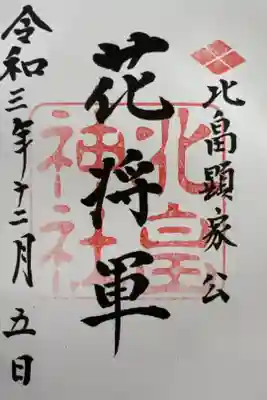 北畠顕家公
花将軍
北皇神社
令和三年十二月五日